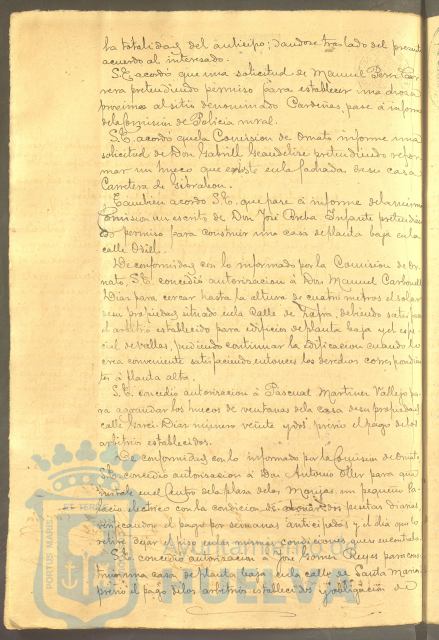 la totalidad del anticipo; dandose traslado del presente
acuerdo al interesado.
S.E. acordó que una solicitud de Manuel
nera pretendiendo permiso para establecer una choza
proximo al sitio denominado Cardeñas, pase á informe
de la Comision de Policia rural.
S.E. acordó que la Comision de Ornato informe una
solicitud de Don Gabriel pretendiendo refor
mar un hueco que existe en la fachada de su casa
Carretera de Gibraleon.
Tambien acordó S.E. que pase á informe de la misma
Comision un escrito de Don José Breba Infante pretendien
do permiso para construir una casa de planta baja en la
calle Odiel.
De conformidad con lo informado por la Comision de Or
nato, S.E. concedió autorizacion á Don Manuel Carbonell
Diaz para cercar hasta la altura de cuatro metros el solar
de su propiedad situado en la Calle de Zafra, debiendo satisfacer
el arbitrio establecido para edificios de planta baja y el espe
cial de vallas, pudiendo continuar la edificacion cuando lo
crea conveniente satisfaciendo entonces los derechos correspondien
tes á planta alta.
S.E. concedió autorizacion á Pascual Martinez Vallejo pa
ra agrandar los huecos de ventanas de la casa de su propiedad
calle Garci-Diaz número veinte y dos, previo el pago de los
arbitrios establecidos.
De conformidad con lo informado por la Comision de Ornato
S.E. concedió autorizacion á Don Antonio Oller para que
instale en el Centro de la plaza de las Monjas, un pequeño Pa
lacio electrico con la condicion de pesetas diarias
verificando el pago por semanas anticipadas y el dia que lo
retire dejar el piso en las mismas condiciones que se encuentra.
S.E. concedió autorizacion á José Gomez Reyes para cons
truir una casa de planta baja en la calle de Santa Maria
previo el pago de los arbitrios establecidos y obligacion de
PORTUS MARIS
ET TERRAE
Ayuntamiento de
HUELVA